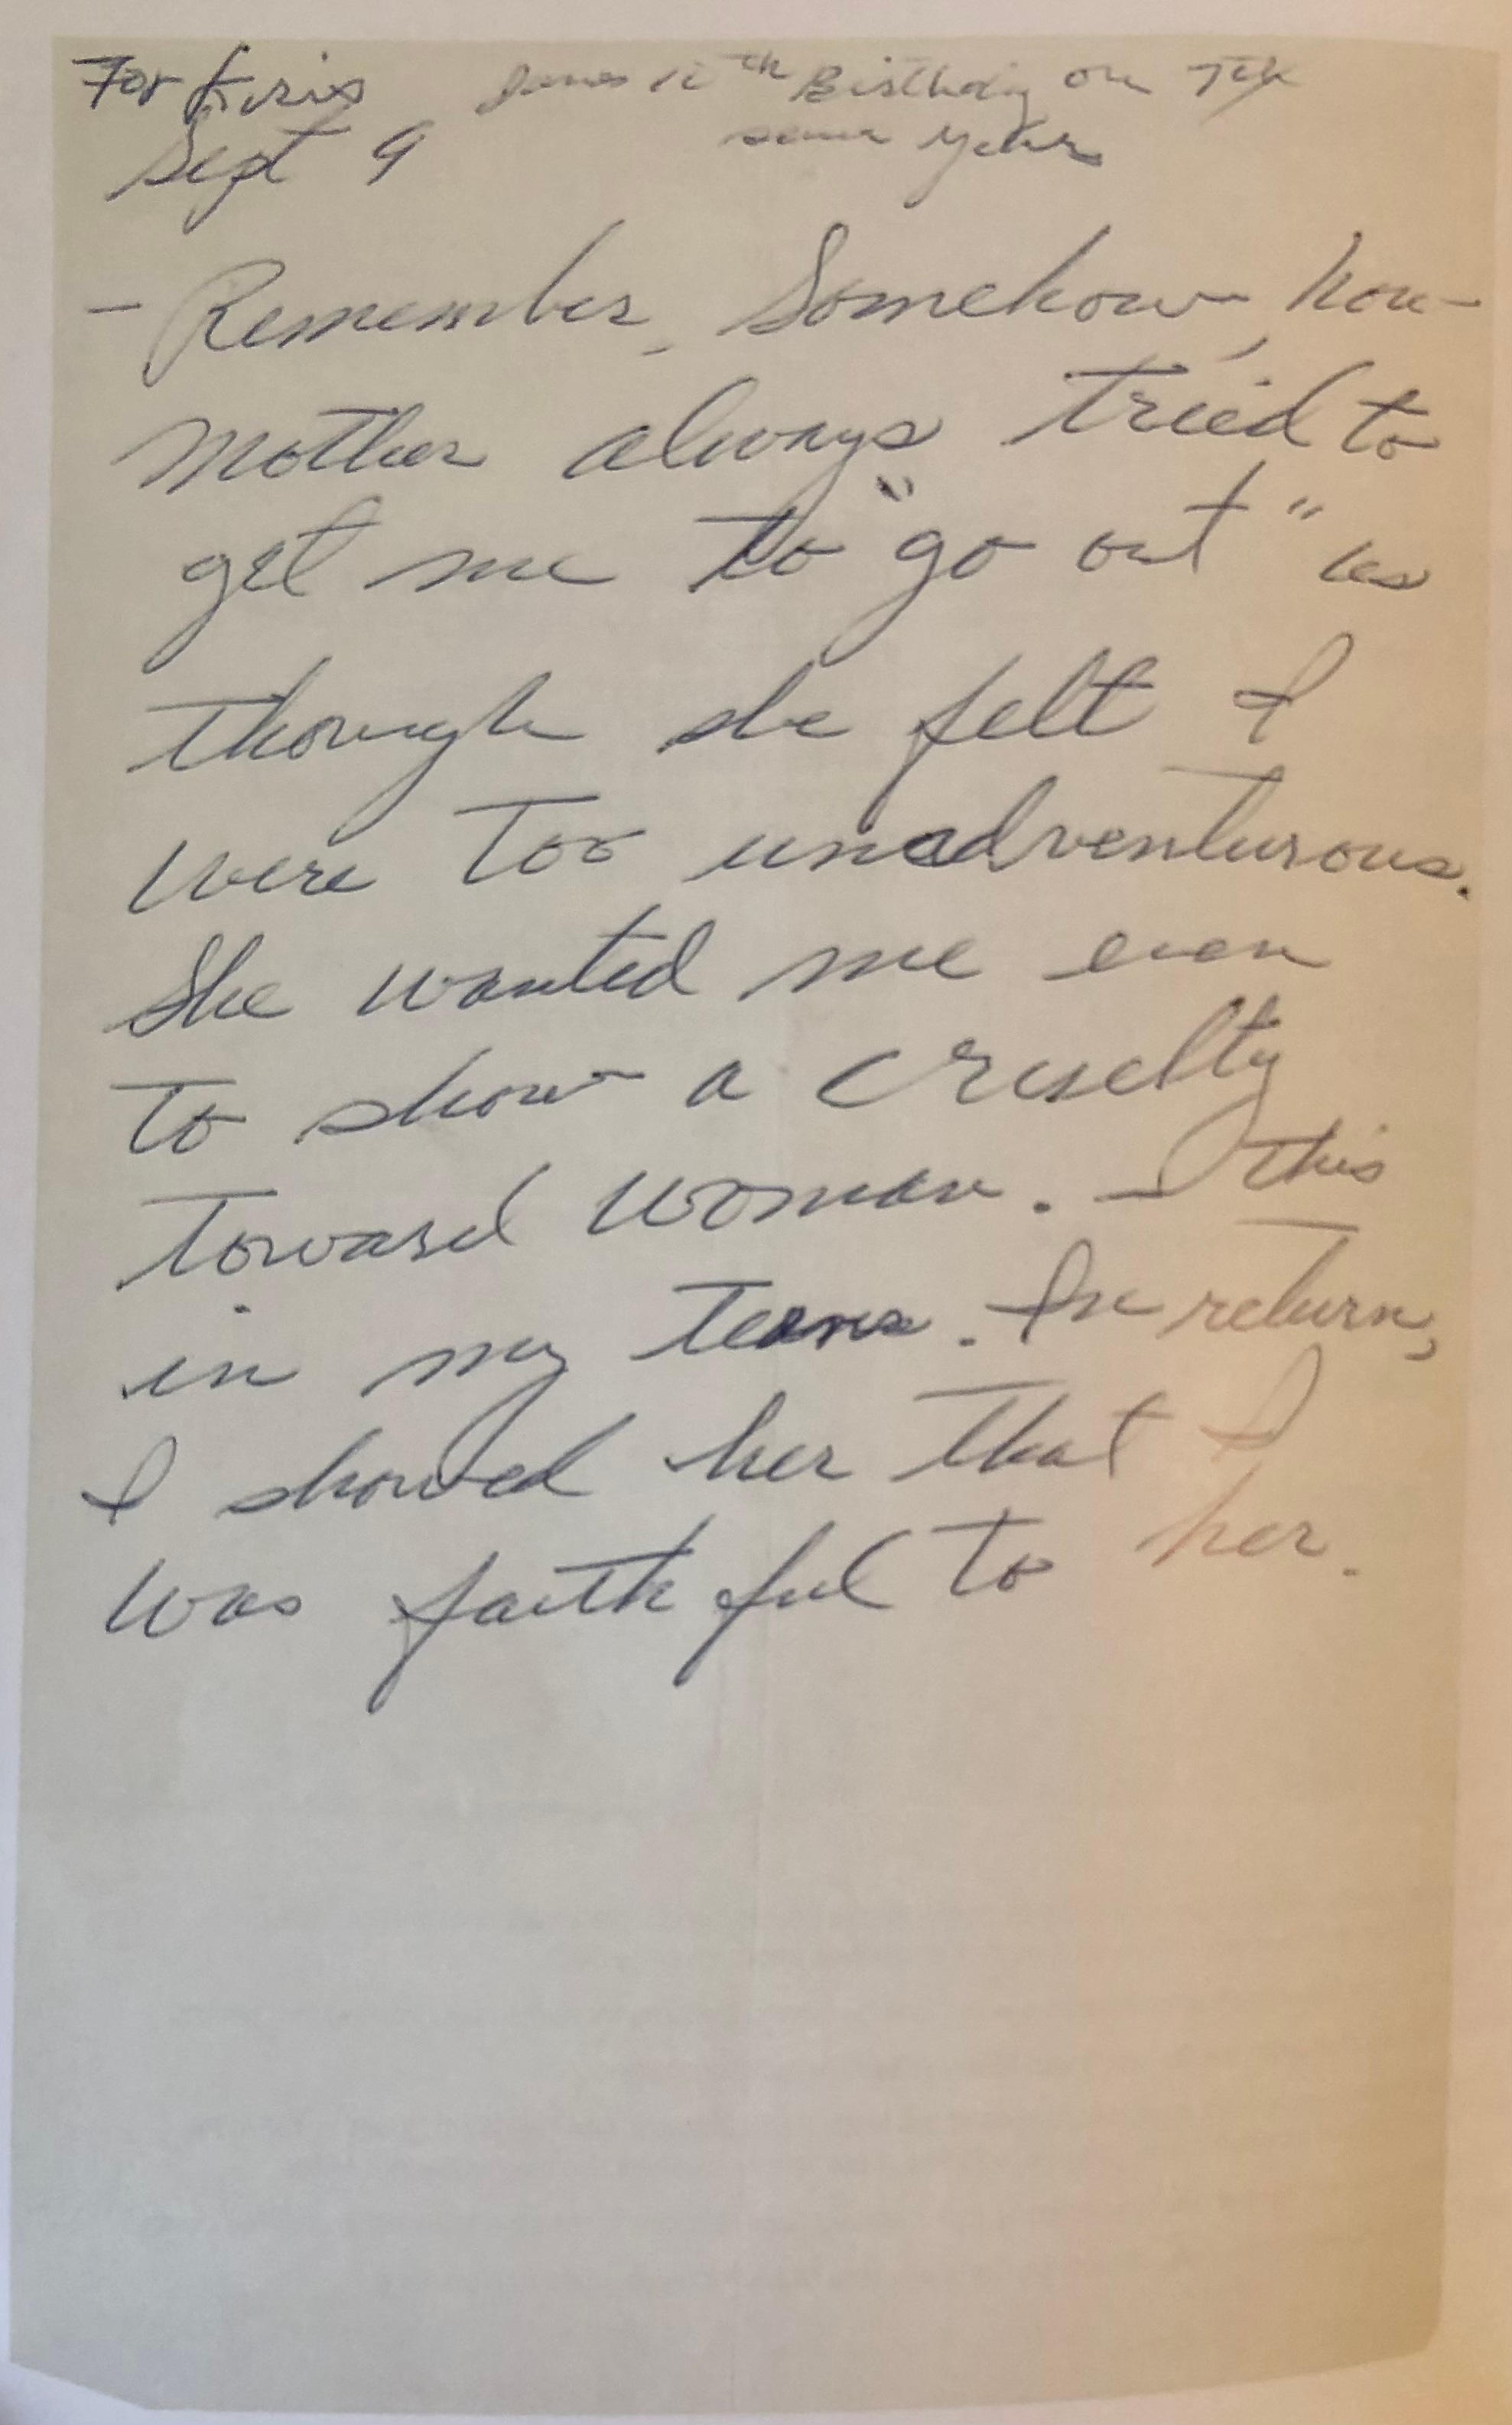 For Eric
Sept 9
12th Birthday on 7th
same year
- Remember, Somehow, how
mother always tried to
get me to "go out" as
though she felt I
were too unadventurous.
She wanted me even
to show a cruelty
toward woman. This
in my teens. In return,
I showed her that I
was faithful to her.